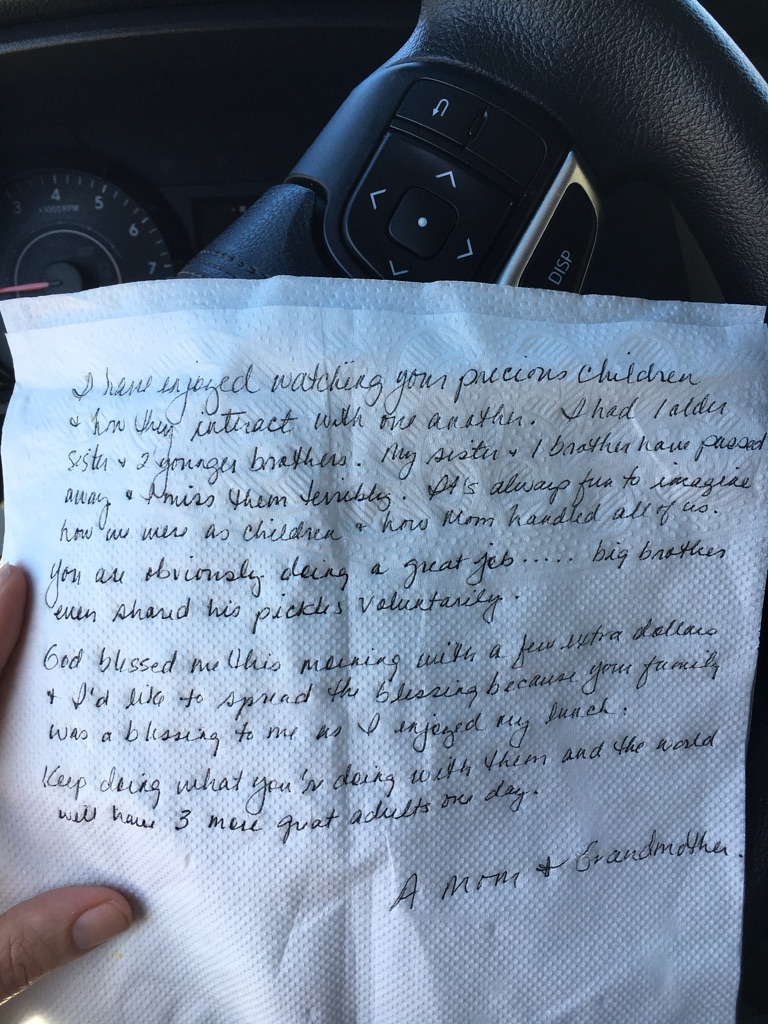 3 4 5 6 7
x1000RPM
DISP
I have enjoyed watching your precious children
& how they interact with one another. I had 1 older
sister & 2 younger brothers. My sister & 1 brother have passed
away & I miss them terribly. It's always fun to imagine
how we were as children & how Mom handled all of us.
You are obviously doing a great job..... big brother
even shared his pickles voluntarily.
God blessed me this morning with a few extra dollars
& I'd like to spread the blessing because your family
was a blessing to me as I enjoyed my lunch.
Keep doing what you're doing with them and the world
will have 3 more great adults one day.
A Mom & Grandmother.